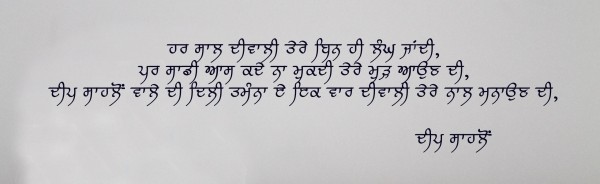 ਹਰ ਸਾਲ ਦੀਵਾਲੀ ਤੇਰੇ ਬਿਨ ਹੀ ਲੰਘ ਜਾਂਦੀ,
ਪਰ ਸਾਡੀ ਆਸ ਕਦੇ ਨਾ ਮੁਕਦੀ ਤੇਰੇ ਮੁੜ ਆਉਣ ਦੀ,
ਦੀਪ ਸਾਹਲੋਂ ਵਾਲੇ ਦੀ ਦਿਲੀ ਤਮੰਨਾ ਏ ਇਕ ਵਾਰ ਦੀਵਾਲੀ ਤੇਰੇ ਨਾਲ ਮਨਾਉਣ ਦੀ,
ਦੀਪ ਸਾਹਲੋਂ